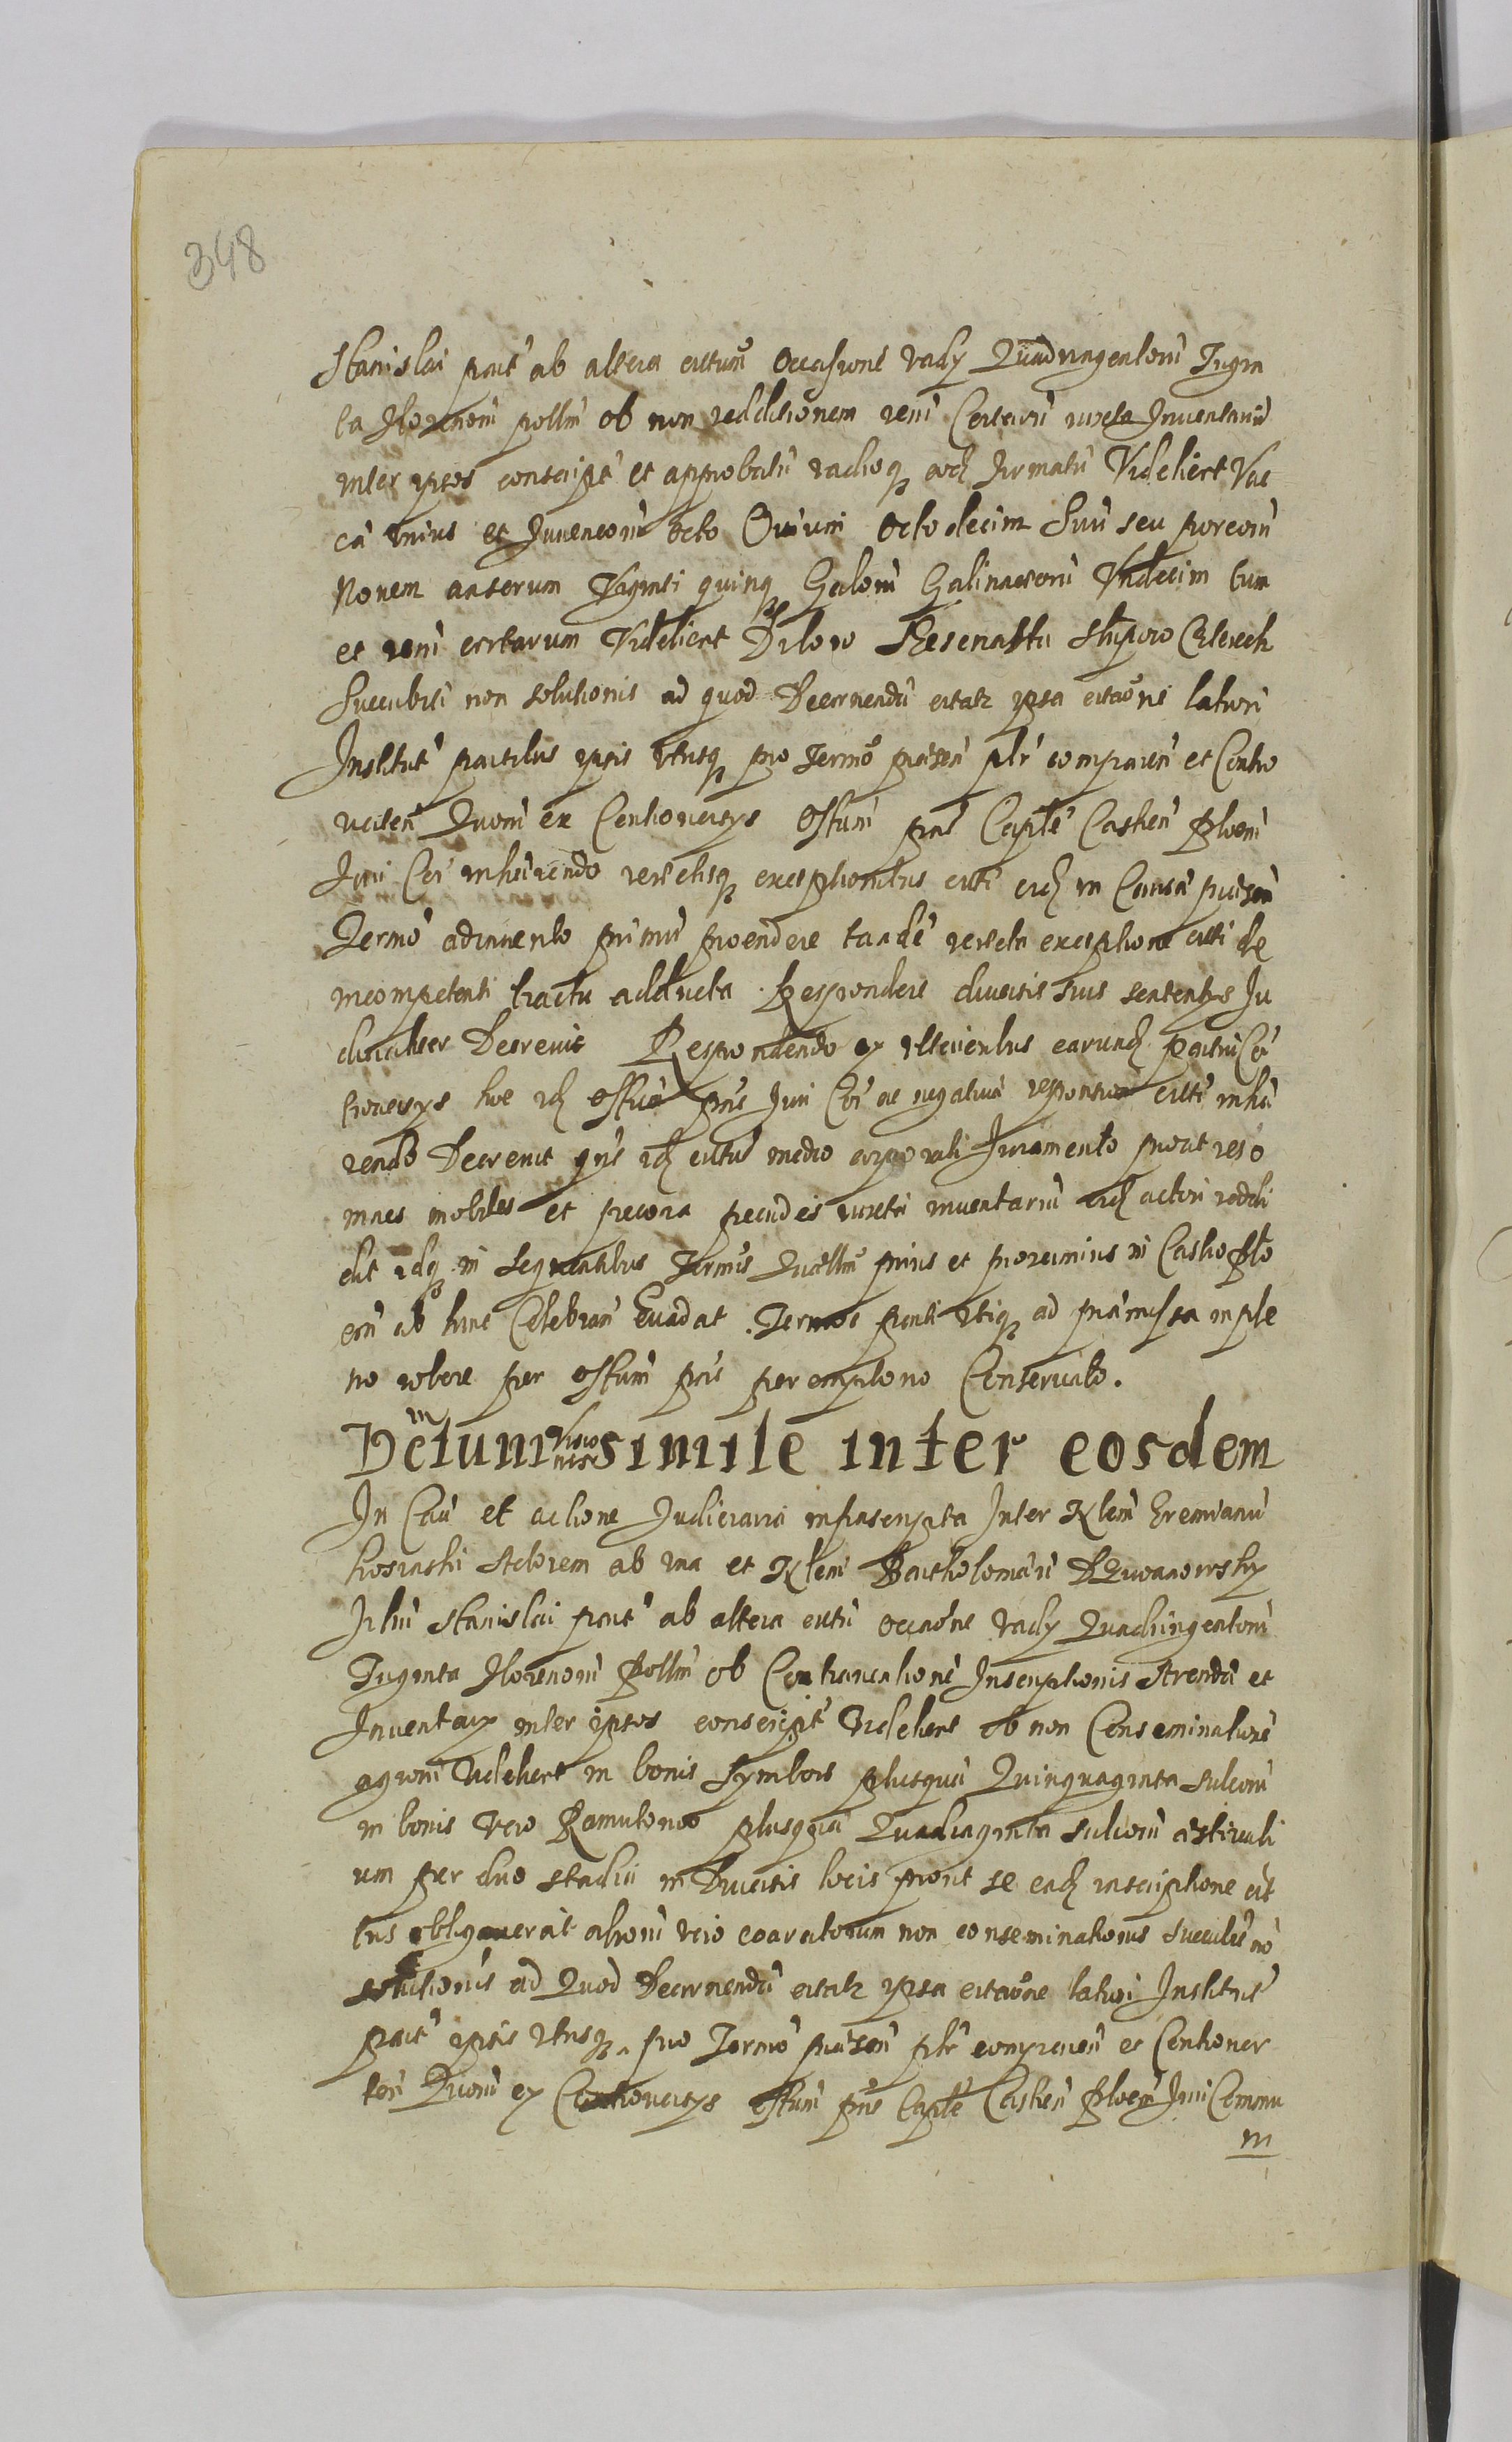 348
Stanislai part ab altera citatum Occasione vady Quadringentorū Trigin
ta Florenorū pollīn ob non redditionem rerū Certarū iuxta Inventariū
inter ipsos conscriptū et approbatū vadioq eodz firmatū Videlicet Vac
cā unius et Juvencorū octo Ovium Octodecim Suū seu porcorū
Novem anserum Viginti quinq Galorū Galinarū Undecim Cum
et rerū certarum Videlicet
Succubiti non solutionis ad quod Decernendū citatr ipsa citaōne latiori
Institut partibus ipsis utrisq pro Termō praesen plr comparen et Contro
verten Quorū ex Controversys Offum prns Capte Castren Plocen
Juri Coi inhaerendo reiectisq exceptionibus citi eidz in Causa praesen
Termō adinvento primū procedere tande reiecta exceptione citi de
incompetenti tractu adducta Respondere diversis suis sententys Ju
dicialiter Decrevit Respondendo ex ulterioribus earundz partiū Cō
troversys hoc idz Offium prns Juri Coi ac negativae responsioni citti inhae
rendo Decrevit qns idz cittus medio corporali Juramento prout res o
mnes mobiles et pecora pecudes iuxta inventariū eidz actori reddi
dit idq in sequentibus Termis Querellīn prius et proximius in Castro Plo
cen ab hinc Celebran Evadat. Termōe parti utriq ad praemissa in ple
no robore per Offium prns peremptorio Conservato.
Dētum simile inter eosdem
In Cau et actione Judiciaria infrascripta Inter Nlem Eremianū
Kosinski Actorem ab una et Nlem Bartholomeū
filiū Stanislai part ab altera cittū occaōne vady Quadringentorū
Triginta Florenorū Pollīn ob Contraventionē Inscriptionis Arendae et
Inventary inter ipsos conscript Videlicet ob non Conseminationē
agrorū Videlicet in bonis Symbors plusquā Quinquaginta sulcorū
in bonis vero Ramutowo plusquā Quadraginta sulcorū aestivali
um per duo stadia in Diversis locis prout se eadz inscriptione cit
tus obligaverat aliorū vero coaratorum non conseminationis succubiti nō
solutionis ad Quod Decernendū citatr ipsa citaōne latiori Institut
part ipsis utrisq. pro Termō praesen plr comparen et Controver
ten Quorū ex Controversys Offum prns Capte Castren Plocen Juri Commu
ni